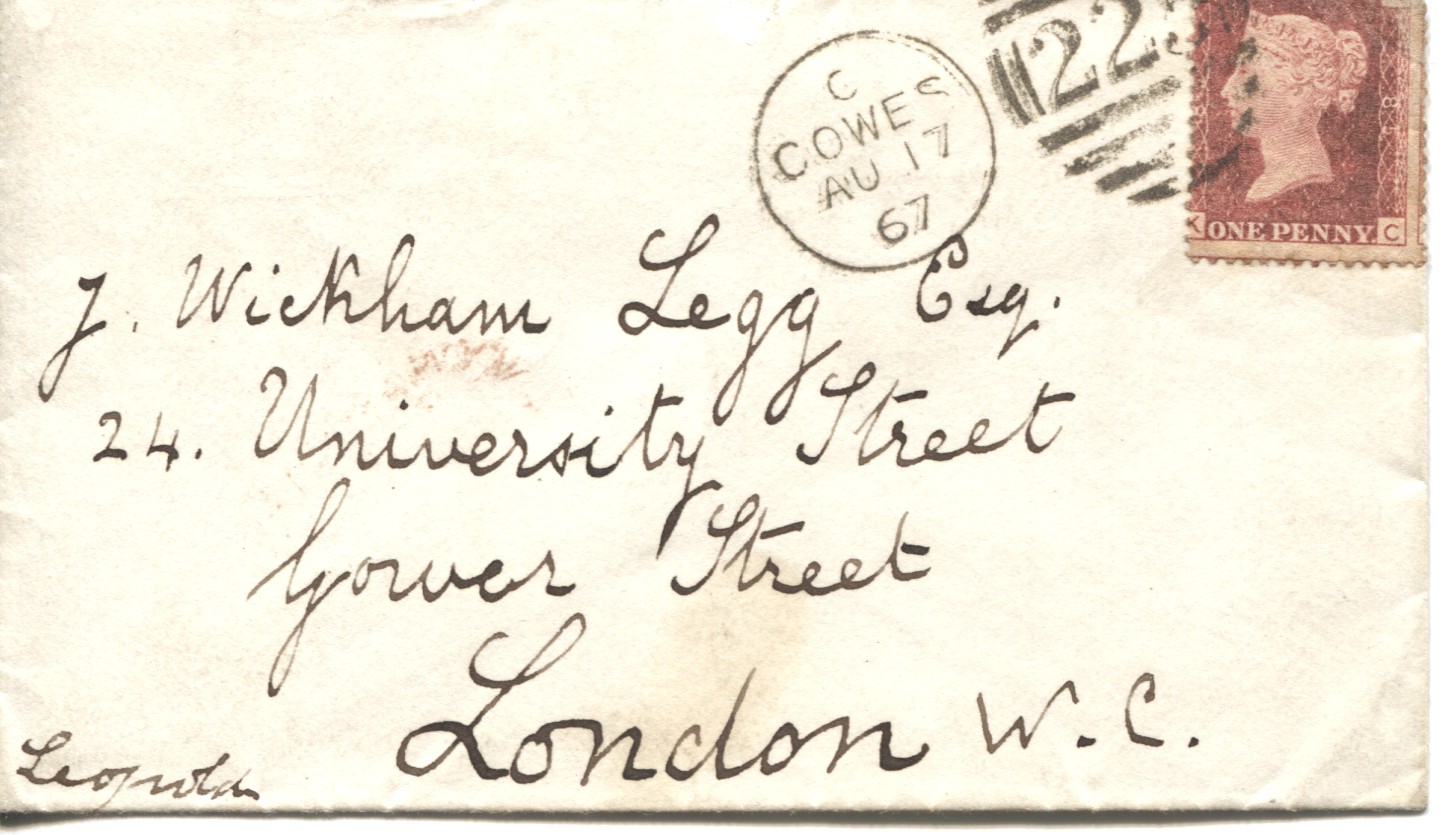 C
COWES
AU 17
67
22
K ONE PENNY. C
J. Wickham Legg Esq.
24. University Street
Gower Street
London W.C.
Leopold